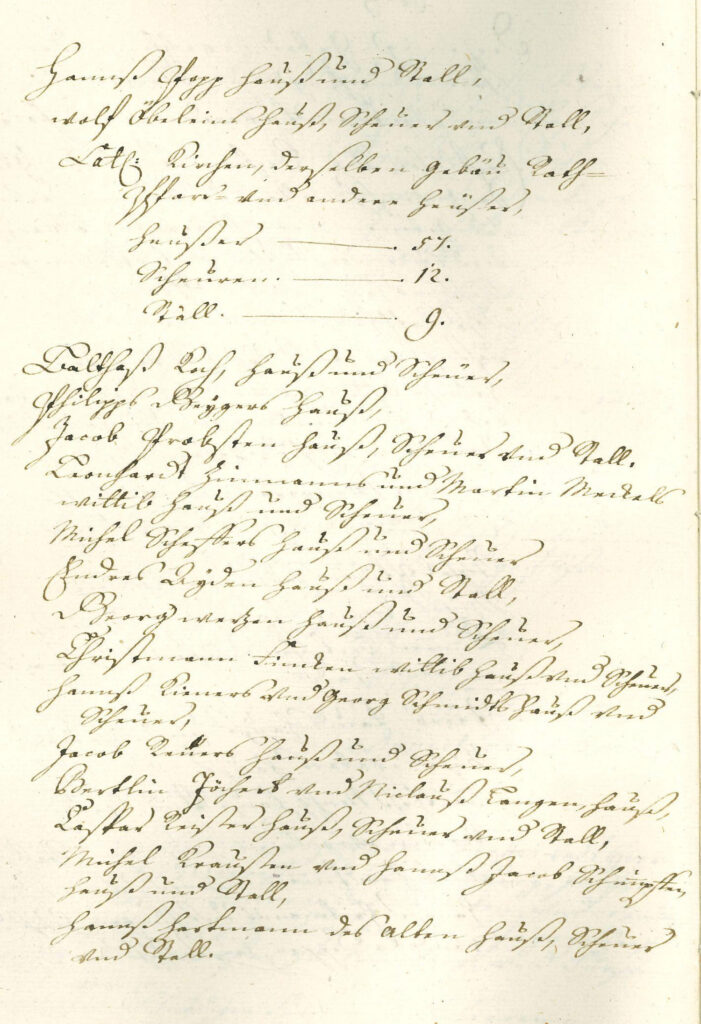 Hannß Popp Hauß und Stall,
wolf Öbeleins Hauß, Scheuer vnd Stall,
Lat: Kirchen, derselben Gebäu Rath=
Pfarr= vnd andere Heußer,
Heußer ——— 57.
Scheuren ——— 12.
Ställ. ——— 9.
Balthaß Koch, Hauß und Scheuer,
Philipps Geÿgers Hauß,
Jacob Probsten Hauß, Scheuer vnd Stall.
Leonhardt Zinmanns und Martin Meckels
wittib Hauß und Scheuer,
Michel Scheffers Hauß und Scheuer
Endres Aÿden Hauß und Stall,
Georg wetzen Hauß und Scheuer,
Christmann Fincken wittib Hauß vnd Scheuer,
Hannß Kimers vnd Georg Schmidts Hauß vnd
Scheuer,
Jacob Reuters Hauß und Scheuer,
Bertlin Jöcherb vnd Niclauß Langen, Hauß,
Caspar Keister Hauß, Scheuer vnd Stall,
Michel Kraussen vnd Hannß Jacob Schimpffen,
Hauß und Stall,
Hannß Hartmann des Alten Hauß, Scheuer
vnd Stall.